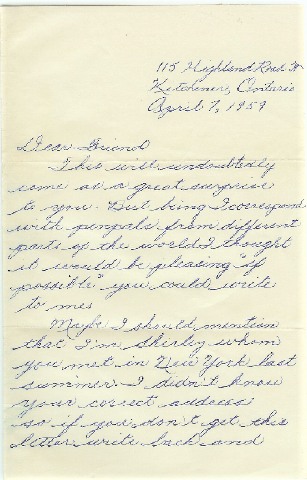 115 Highland Road W
Kitchener, Ontario
April 7, 1959
Dear Friend
This will undoubtedly
come as a great surprise
to you. But being I correspond
with penpals from different
parts of the world I thought
it would be pleasing "if
possible" you could write
to me.
Maybe I should mention
that I'm Shirley whom
you met in New York last
summer. I didn't know
your correct address
so if you don't get this
letter write back and